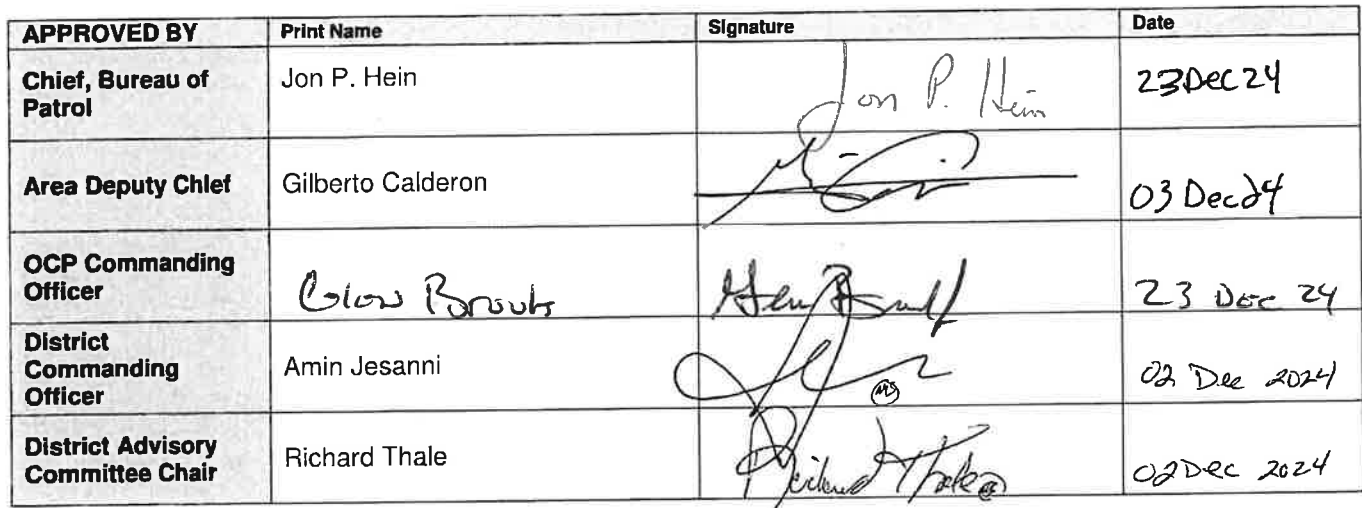 APPROVED BY Print Name Signature Date
Chief, Bureau of Patrol Jon P. Hein Jon P. Hein 23Dec24
Area Deputy Chief Gilberto Calderon 03 Dec24
OCP Commanding Officer 23 Dec 24
District Commanding Officer Amin Jesanni 02 Dec 2024
District Advisory Committee Chair Richard Thale Richard Thale 02Dec 2024